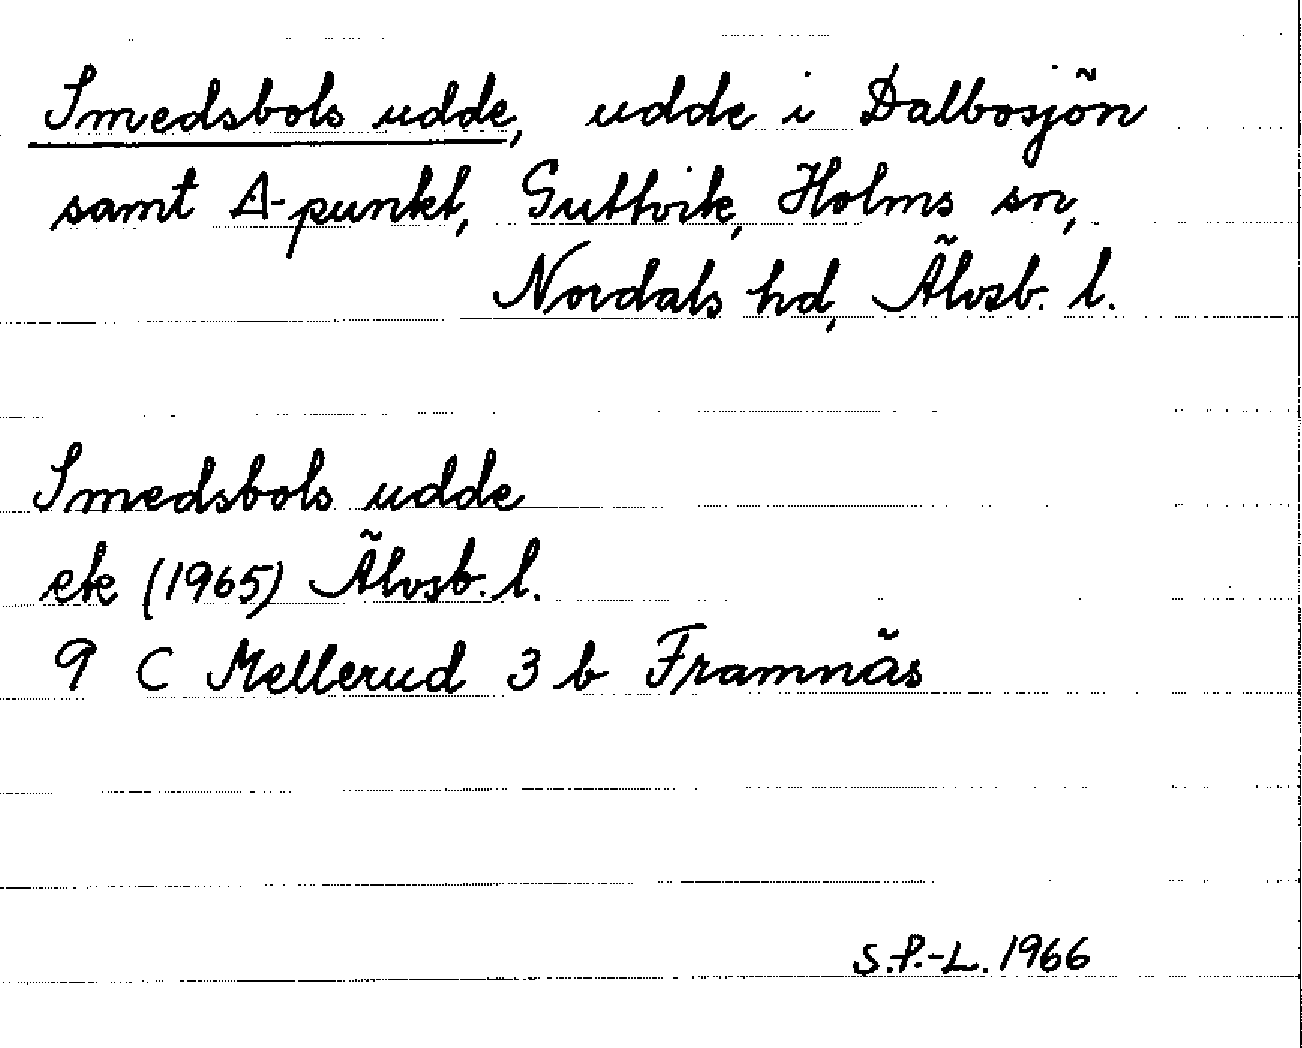 Smedsbols udde, udde i Dalbosjön
samt Δ-punkt, Guttvik, Holms sn,
Nordals hd, Älvsb. l.
Smedsbols udde
ek (1965) Älvsb. l.
9 C Mellerud 3 b Framnäs
S.P.-L. 1966